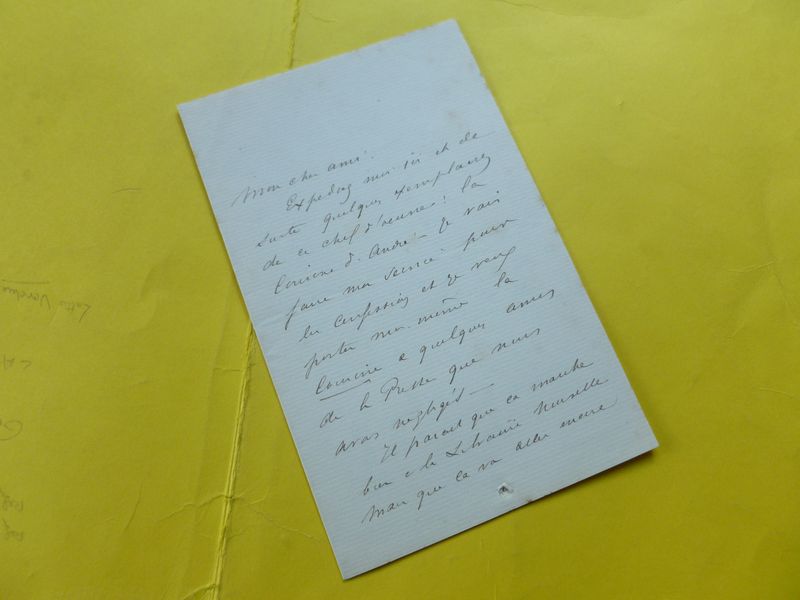 Mon cher ami.
Expediez moi ici et de
suite quelques exemplaires
de ce chef d'œuvre! la
Cousine d'André. Je vais
faire mon service pour
les Confessions et je veux
porter moi même la
Cousine a quelques amis
de la Presse que nous
avons negligés —
Il parait que ca marche
bien a la Librairie Nouvelle
mais que ca va aller encore